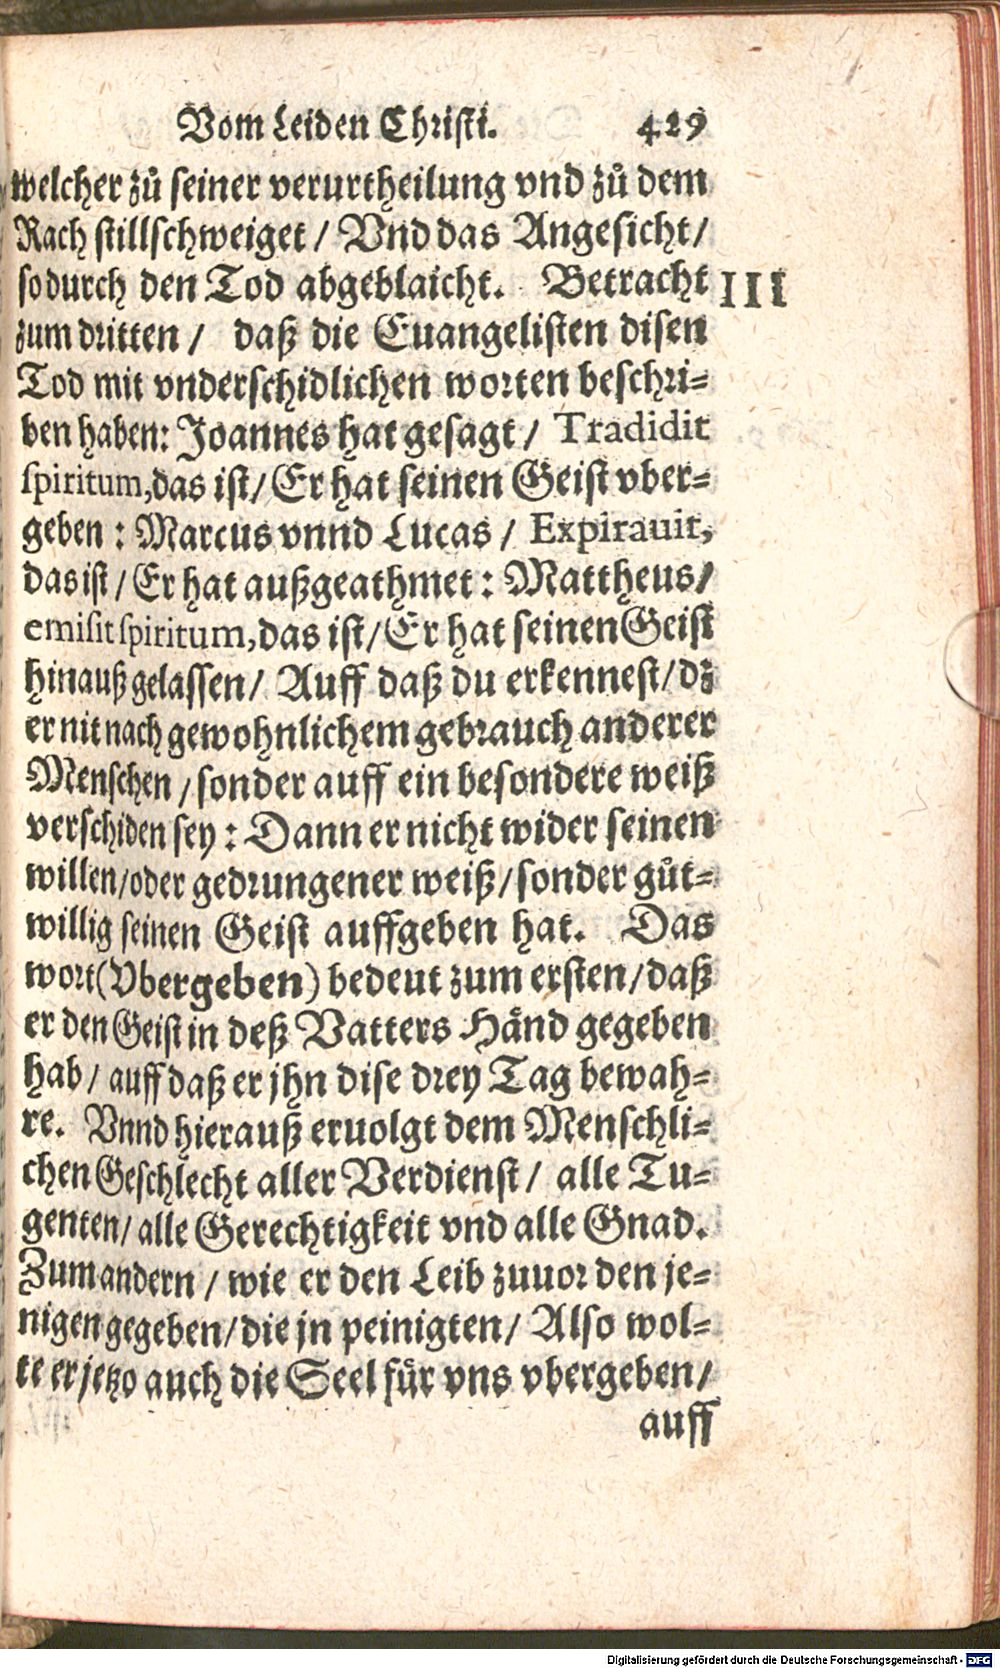 Vom Leiden Christi. 429
welcher zů seiner verurtheilung vnd zů dem
Rach stillschweiget / Vnd das Angesicht /
so durch den Tod abgeblaicht. Betracht III
zum dritten / daß die Euangelisten disen
Tod mit vnderschidlichen worten beschri-
ben haben: Joannes hat gesagt / Tradidit
spiritum, das ist / Er hat seinen Geist vber-
geben : Marcus vnnd Lucas / Expirauit,
das ist / Er hat außgeathmet : Mattheus /
emisit spiritum, das ist / Er hat seinen Geist
hinauß gelassen / Auff daß du erkennest / dz
er nit nach gewohnlichem gebrauch anderer
Menschen / sonder auff ein besondere weiß
verschiden sey : Dann er nicht wider seinen
willen / oder gedrungener weiß / sonder gůt-
willig seinen Geist auffgeben hat. Das
wort (Vbergeben) bedeut zum ersten / daß
er den Geist in deß Vatters Händ gegeben
hab / auff daß er jhn dise drey Tag bewah-
re. Vnnd hierauß eruolgt dem Menschli-
chen Geschlecht aller Verdienst / alle Tu-
genten / alle Gerechtigkeit vnd alle Gnad.
Zum andern / wie er den Leib zuuor den je-
nigen gegeben / die jn peinigten / Also wol-
te er jetzo auch die Seel für vns vbergeben /
auff
Digitalisierung gefördert durch die Deutsche Forschungsgemeinschaft - DFG